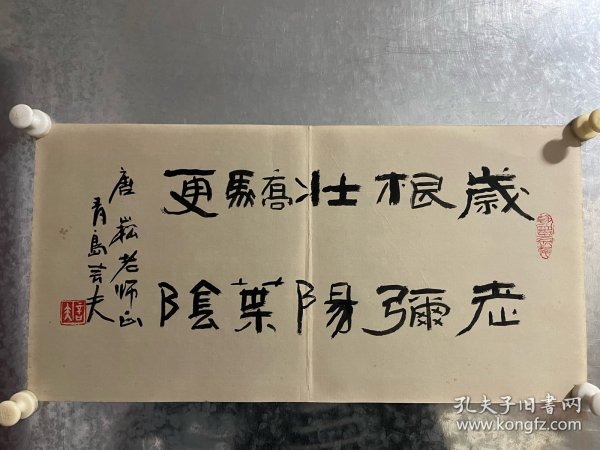 歲老
根彌
壯陽
驕葉
更陰
唐崧老师正
青島芸夫
孔夫子旧书网